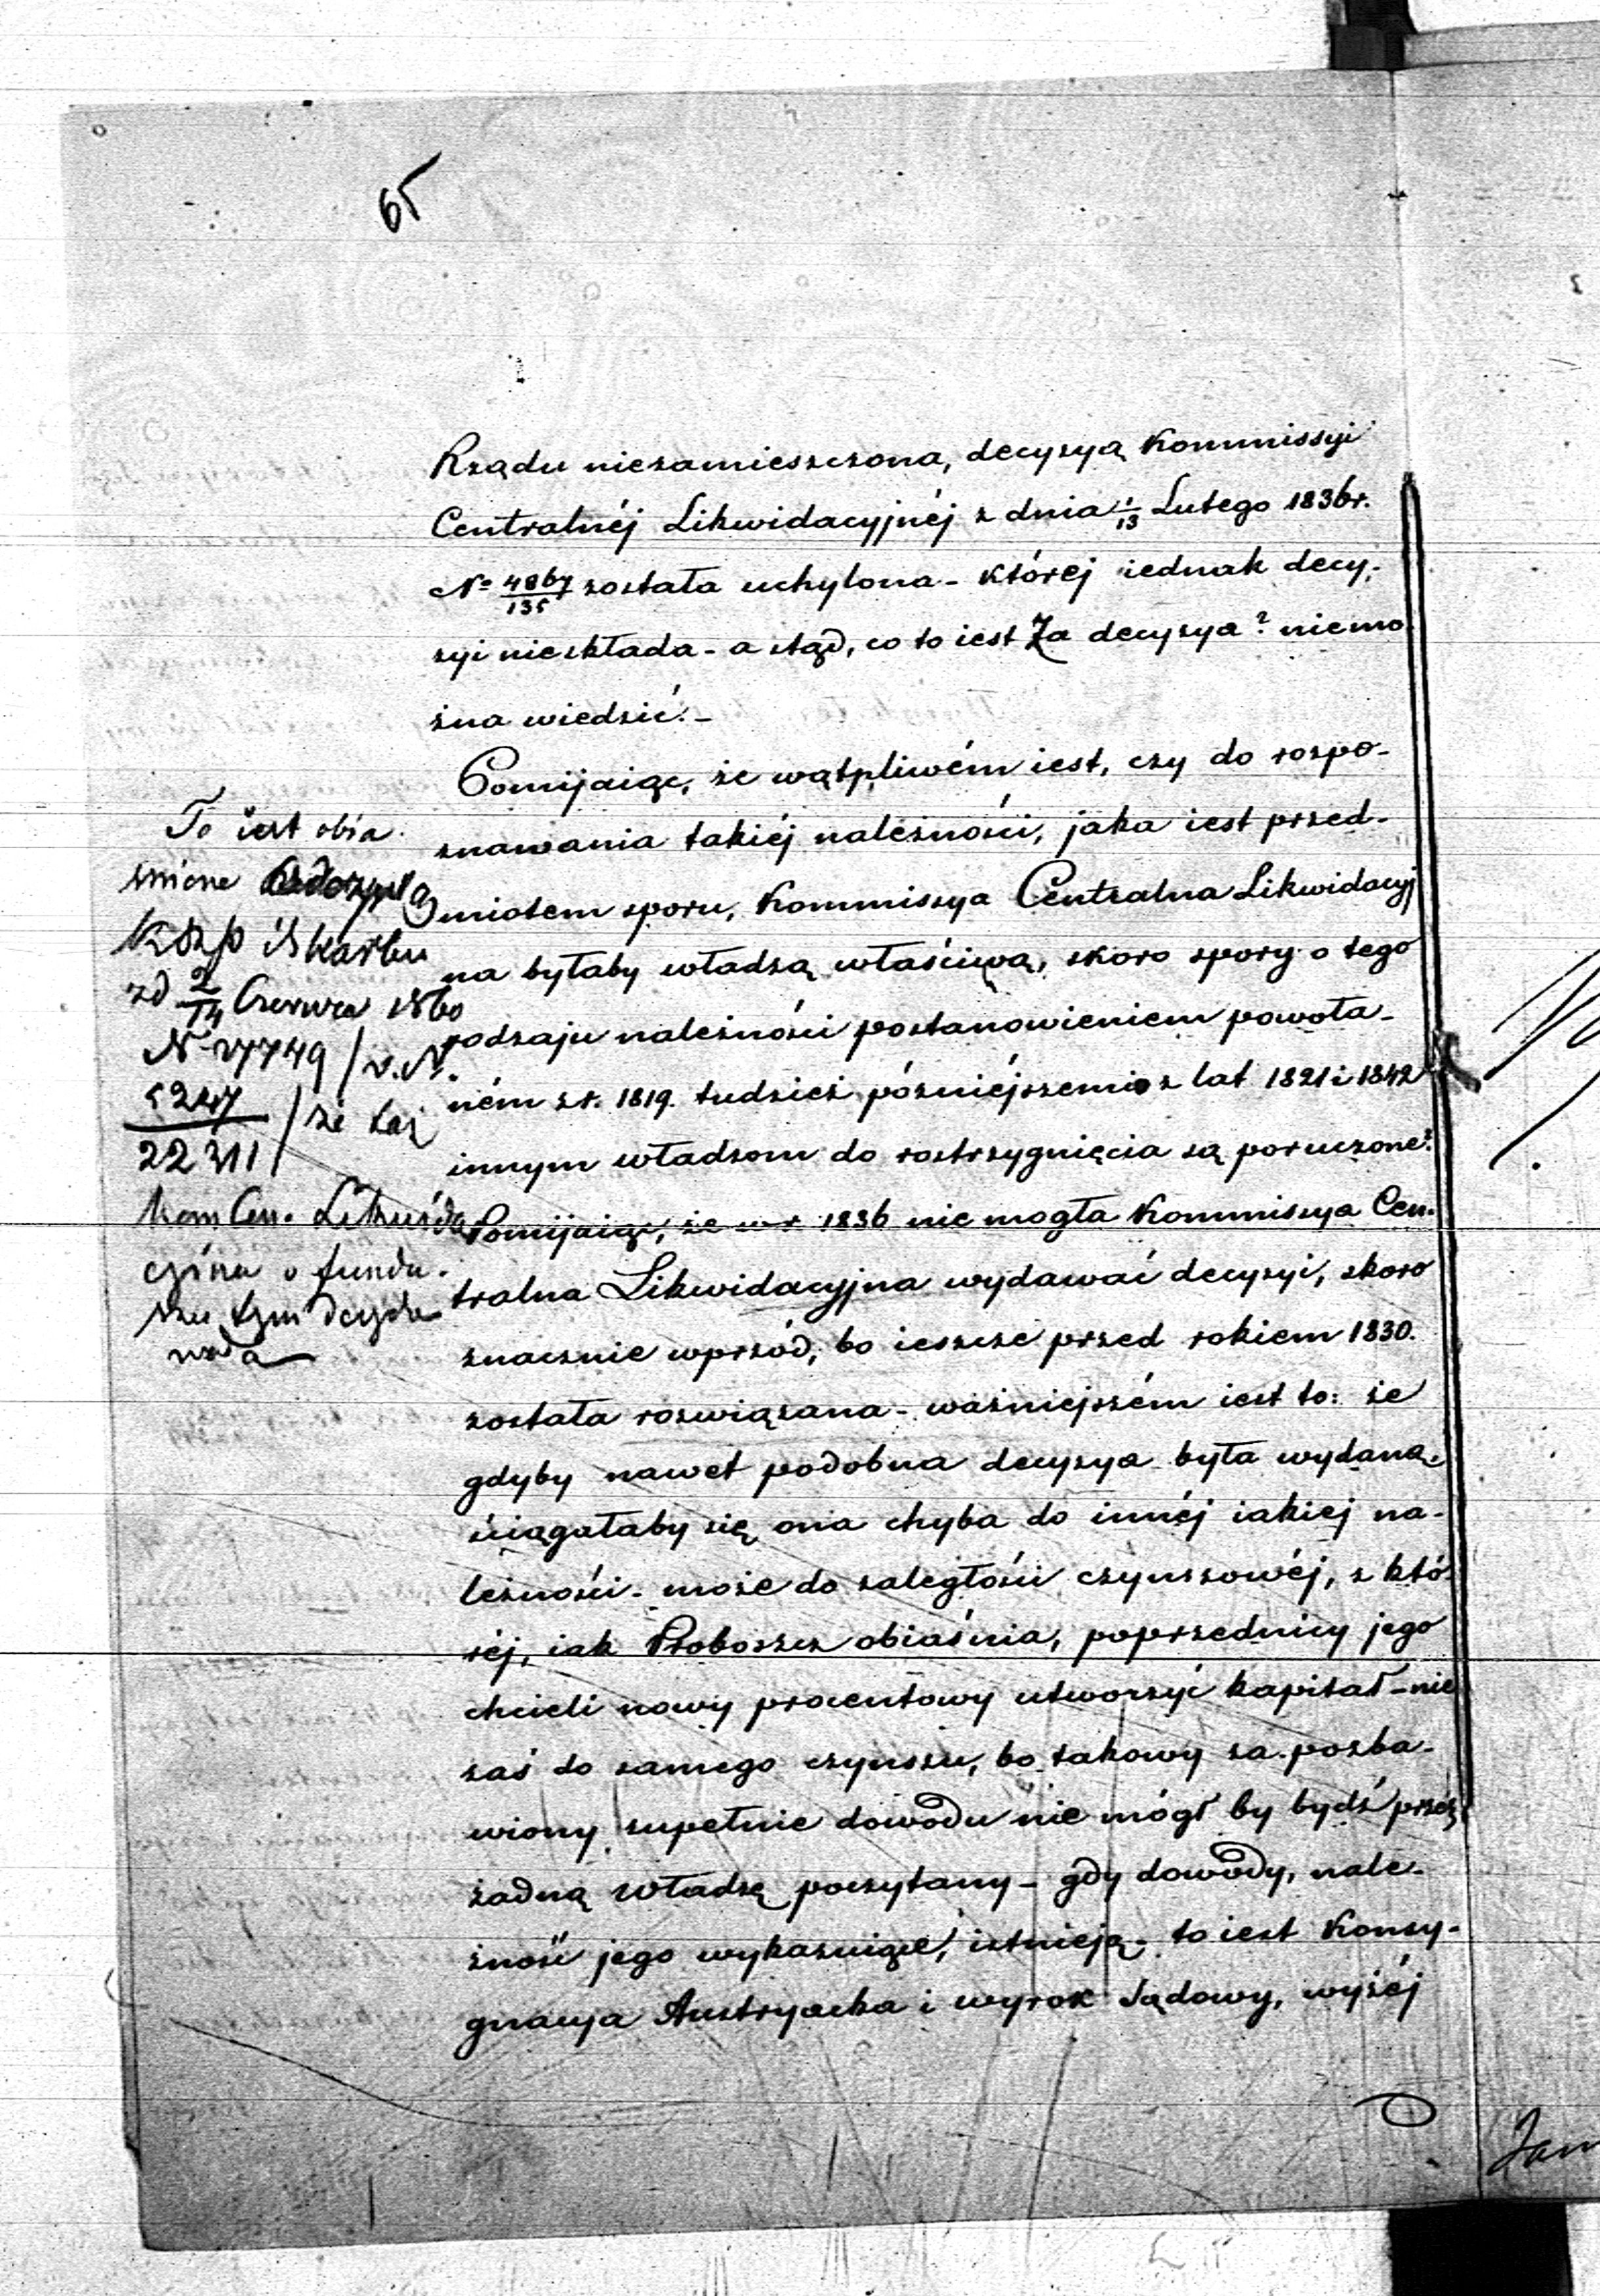 65
Rządu niezamieszczona, decyzyą Kommissyi
Centralnéj Likwidacyjnéj z dnia 1/13 Lutego 1836 r.
No 4867/135 została uchylona - której iednak decy-
zyi nieskłada - a ztąd, co to iest Za decyzya? niemo
żna wiedzić. -
Pomijaiąc, że wątpliwém iest, czy do rozpo-
znawania takiéj należności, jaka iest przed-
miotem sporu, Kommissya Centralna Likwidacyj
na byłaby władzą właściwą, skoro spory o tego
rodzaju należności postanowieniem powoła-
ném z r. 1819. tudzież późniéjszemi z lat 1821 i 1842
innym władzom do rostrzygnięcia są poruczone?
Pomijaiąc, że w r 1836 nie mogła Kommissya Cen-
tralna Likwidacyjna wydawać decyzyi, skoro
znacznie wprzód, bo ieszcze przed rokiem 1830.
została rozwiązana - ważniejszém iest to: że
gdyby nawet podobna decyzya była wydaną,
ściągałaby się ona chyba do innéj iakiej na-
leżności - może do zaległości czynszowéj, z któ-
réj, iak Proboszcz obiaśnia, poprzednicy jego
chcieli nowy procentowy utworzyć kapitał - nie
zaś do samego czynszu, bo takowy za pozba-
wiony zupełnie dowodu nie mógł by bydź przez
żadną władzę poczytany - gdy dowody, nale-
żność jego wykazuiące, istnieją - to iest Konsy-
gnacya Austryacka i wyrok Sądowy, wyżéj
To iest obia-
śnione Odezwą
KRzP i Skarbu
zd 2/14 Czerwca 1860
N 27749 / v. N.
5247/22311 / że taż
Kom Cen. Likwida
cyina o fundu-
szu tym decydo
wała